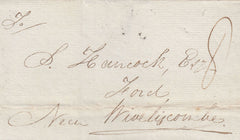 To
S. Hancock, Esqr. 8
Ford,
Near Wiveliscombe